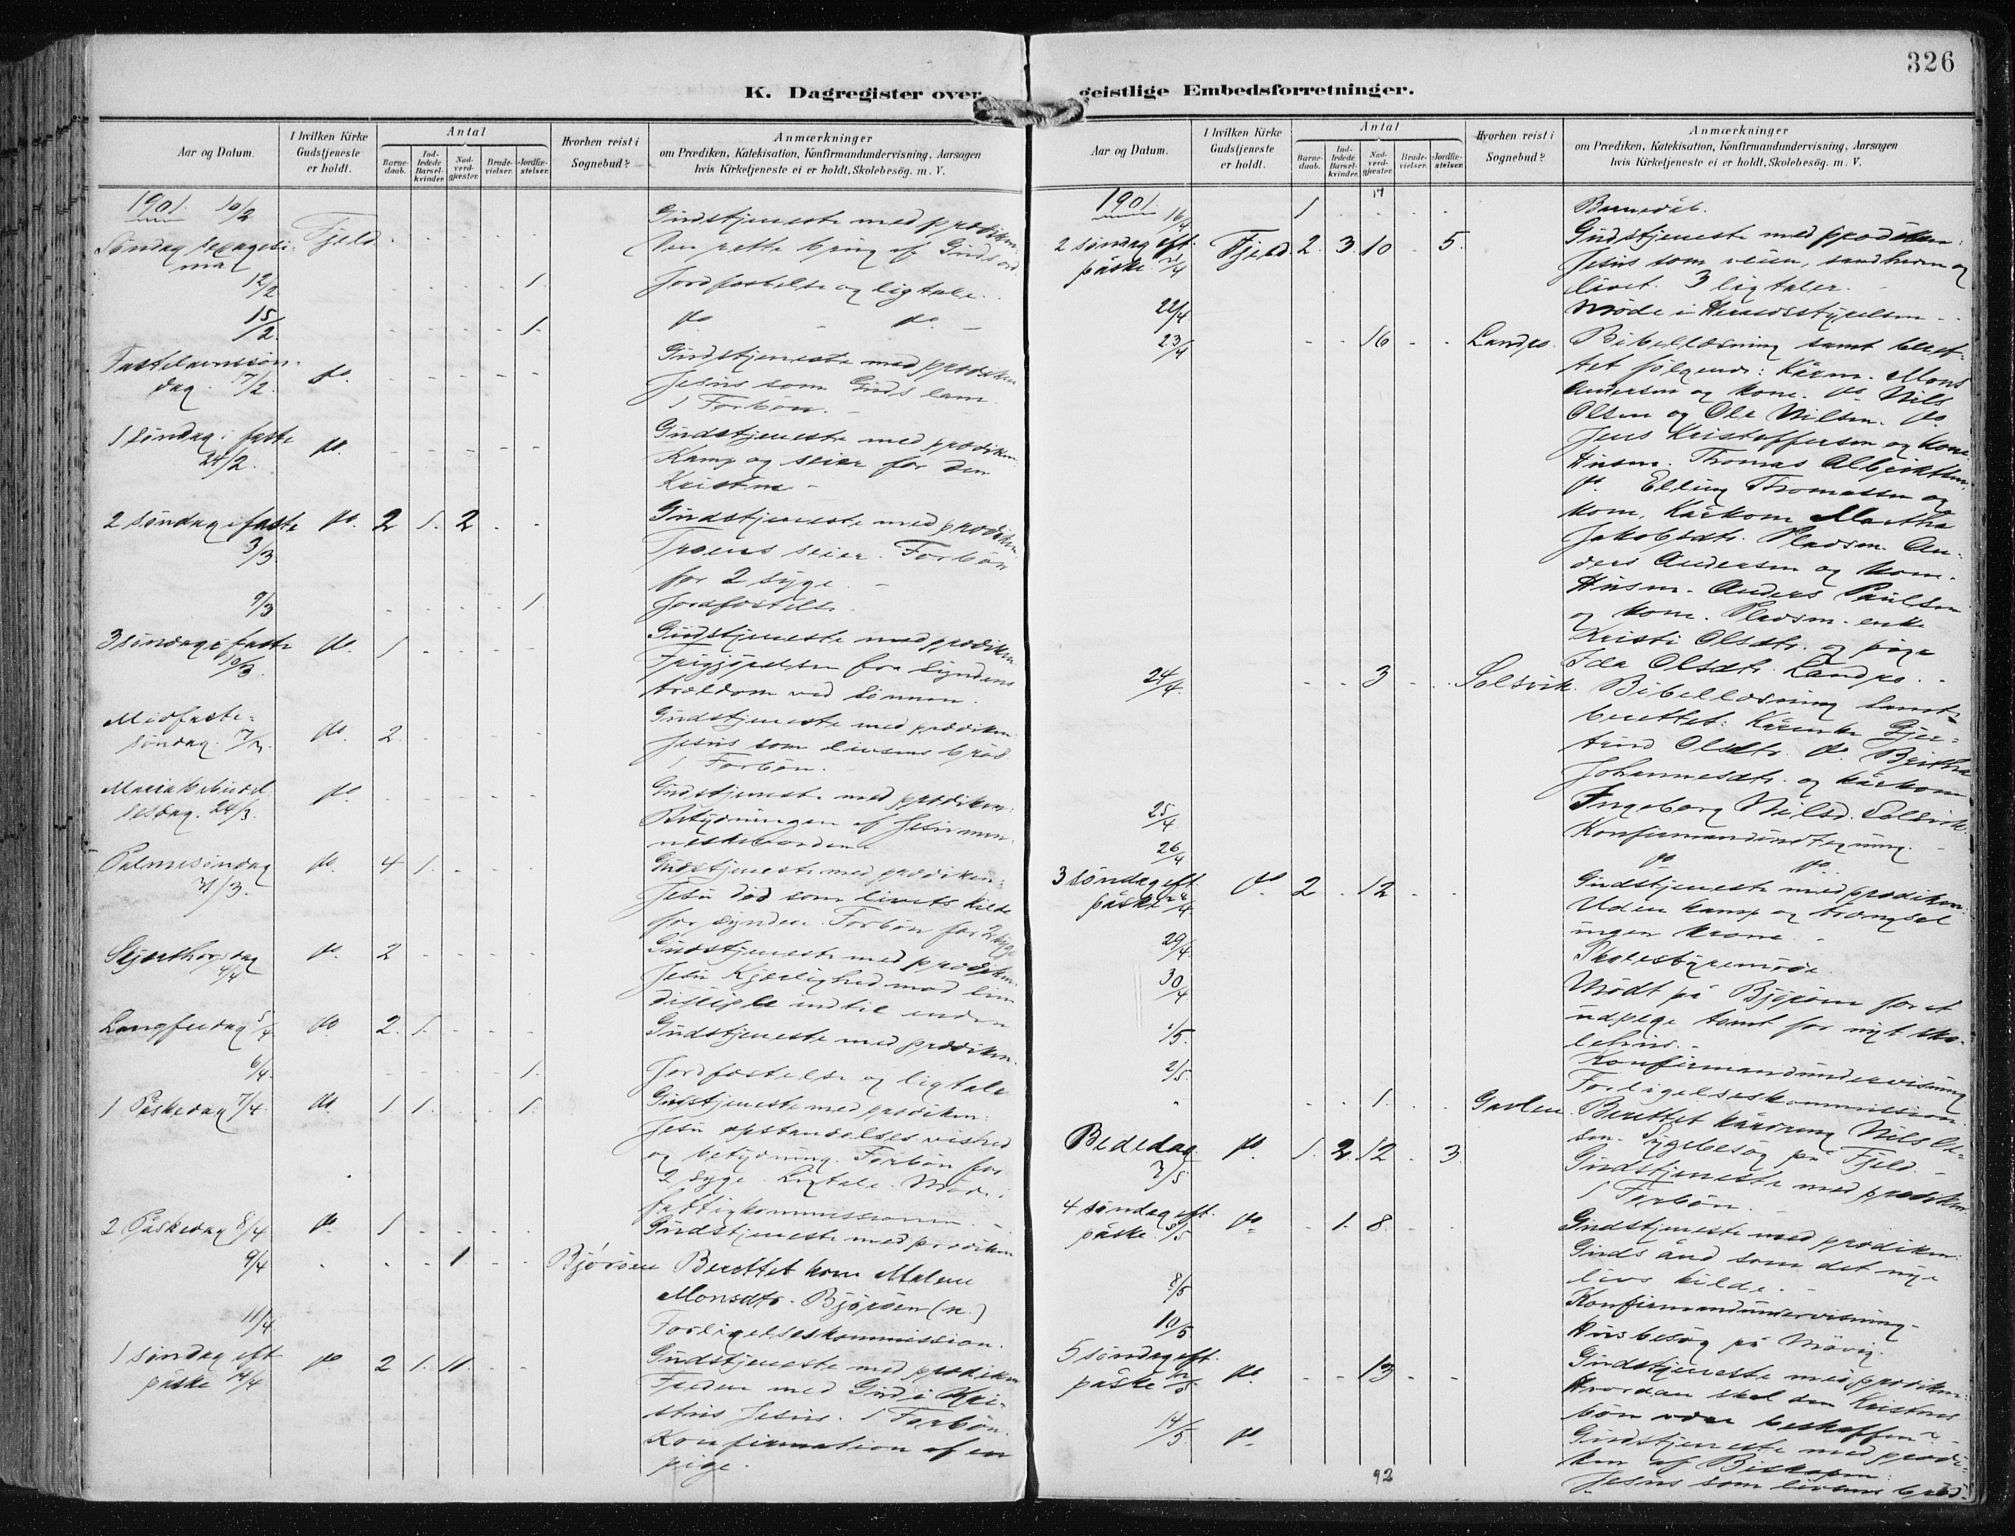 326
K. Dagregister over geistlige Embedsforretninger.
Aar og Datum.
I hvilken Kirke Gudstjeneste er holdt.
Antal
Barnedaab.
Indledede Barselkvinder.
Nadverdgjæster.
Brudevielser.
Jordfæstelser.
Hvorhen reist i Sognebud?
Anmærkninger
om Prædiken, Katekisation, Konfirmandundervisning, Aarsagen
hvis Kirketjeneste ei er holdt, Skolebesøg. m. V.
1901. 10/2 Gudstjeneste med prædiken:
Søndag sexagesi- Fjeld Den rette brug af Guds ord
ma
12/2 1. Jordfæstelse og ligtale.
15/2 1. do. - do. -
Fastelavnssøn- Gudstjeneste med prædiken
dag. 17/2 do. Jesus som Guds lam.
1 Forbøn. -
1 søndag i faste do. Gudstjeneste med prædiken:
24/2. Kamp og seier for den
Kristne -
2 søndag i faste do. 2 1. 2 Gudstjeneste med prædiken
3/3 Troens seier. Forbøn
for 2 syge. -
9/3 1. Jordfæstelse.
3 søndag i faste do. 1 Gudstjeneste med prædiken
10/3. Frigjørelsen fra syndens
trældom ved sønnen.
Midfaste- Gudstjeneste med prædiken
søndag. 17/3. do. 2. Jesus som livsens brød
1 Forbøn. -
Maria bebudel- do. Gudstjeneste med prædiken:
sesdag. 24/3. Betydningen af Jesu men-
neskevorden
Palmesøndag do. 4 1. Gudstjeneste med prædiken:
31/3. Jesu død som livets kilde
for synden. Forbøn for 2 syge
Skjærthorsdag do. 2 Gudstjeneste med prædiken
4/4 Jesu Kjærlighed mod sine
disciple indtil enden
Langfredag 5/4 do 2. 1. Gudstjeneste med prædiken.
6/4. 1. Jordfæstelse og ligtale
1 Påskedag 7/4. do. 1 1. 1. Gudstjeneste med prædiken:
Jesu opstandelses vished
og betydning. Forbøn for
2 syge. Ligtale. Møde i
fattigkommissionen. -
2 Påskedag 8/4 do. 1 Gudstjeneste med prædiken
9/4 1. Bjørøen Berettet kone Malene
Monsdtr. Bjørøen (n.)
11/4 Forligelseskommission.
1 søndag eft. do 2 1. 11. Gudstjeneste med prædiken
påske 14/4 Freden med Gud i Kri-
stus Jesus. 1 Forbøn.
Konfirmation af en
pige.
Aar og Datum.
I hvilken Kirke Gudstjeneste er holdt.
Antal
Barnedaab.
Indledede Barselkvinder.
Nadverdgjæster.
Brudevielser.
Jordfæstelser.
Hvorhen reist i Sognebud?
Anmærkninger
om Prædiken, Katekisation, Konfirmandundervisning, Aarsagen
hvis Kirketjeneste ei er holdt, Skolebesøg. m. V.
1901. 16/4 1 Barnedåb.
2 søndag eft. Fjeld. 2. 3. 10 5. Gudstjeneste med prædiken:
påske 21/4 Jesus som veien, sandheden og
livet. 3 ligtaler. -
22/4 Møde i Herredsstyrelsen
23/4 16 Landro. Bibellæsning samt beret-
tet følgende: Kårm. Mons
Andersen og kone. do Nils
Olsen og Ole Nilsen. do.
Jens Kristoffersen og kone
Husm. Thomas Albrektsen.
do. Elling Thomassen og
kone. Kårkone Martha
Jakobsdtr. Pladsm. An-
ders Andersen og kone.
Husm. Anders Paulsen
og kone. Pladsm. enke
Kristi Olsdtr. og pige
Ida Olsdtr. Landro.
24/4. 3 Solsvik. Bibellæsning samt
berettet: Kårenke Gjer-
trud Olsdtr. do. Britha
Johannesdtr. og kårkone
Ingeborg Nilsd. Solsvik.
25/4. Konfirmandindtegning.
26/4 do do.
3 søndag eft. do. 2 12 Gudstjeneste med prædiken.
påske 28/4 Uden kamp og trængsel
ingen krone.
29/4 Skolestyremøde.
30/4 Mødt på Bjørøen for at
udpege tomt for nyt sko-
lehus. -
1/5. Konfirmandundervisning
2/5. Forligelseskommission.
" 1. Berettet Nils
Sygebesøg på Fjeld. -
Bededag. do. 1. 2. 12 3. Gudstjeneste med prædiken
3/5 1 Forbøn. -
4 søndag eft. do 1. 8. Gudstjeneste med prædiken:
påske 5/5 Guds ånd som det nye
livs kilde.
8/5 Konfirmandundervisning.
10/5 Husbesøg på Møvig.
5 søndag eft. do. 13 Gudstjeneste med prædiken:
påske 12/5 Hvordan skal den Kristnes
bøn være beskaffen
14/5. do. Gudstjeneste med prædi-
ken af Biskopen:
92 Jesus som livsens brød.